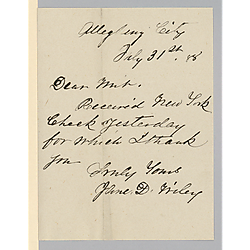 Allegheny City
July 31st. 
Dear Mrt.
Received New York
Check yesterday
for which I thank
you
Truly Yours
Jane D. Wiley